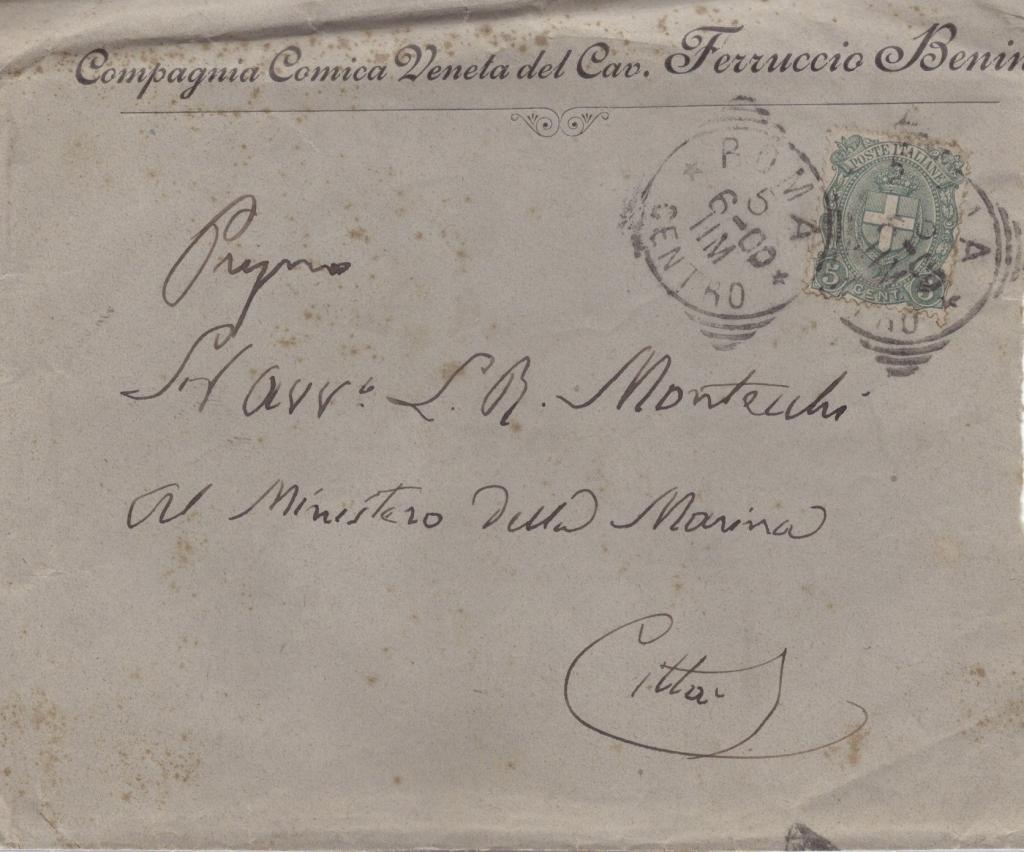 Compagnia Comica Veneta del Cav. Ferruccio Benin
POSTE ITALIANE
5 CENT 5
ROMA
5
6-00
11M
CENTRO
Pregmo
Sr Avvo. L. R. Montecchi
Al Ministero della Marina
Città